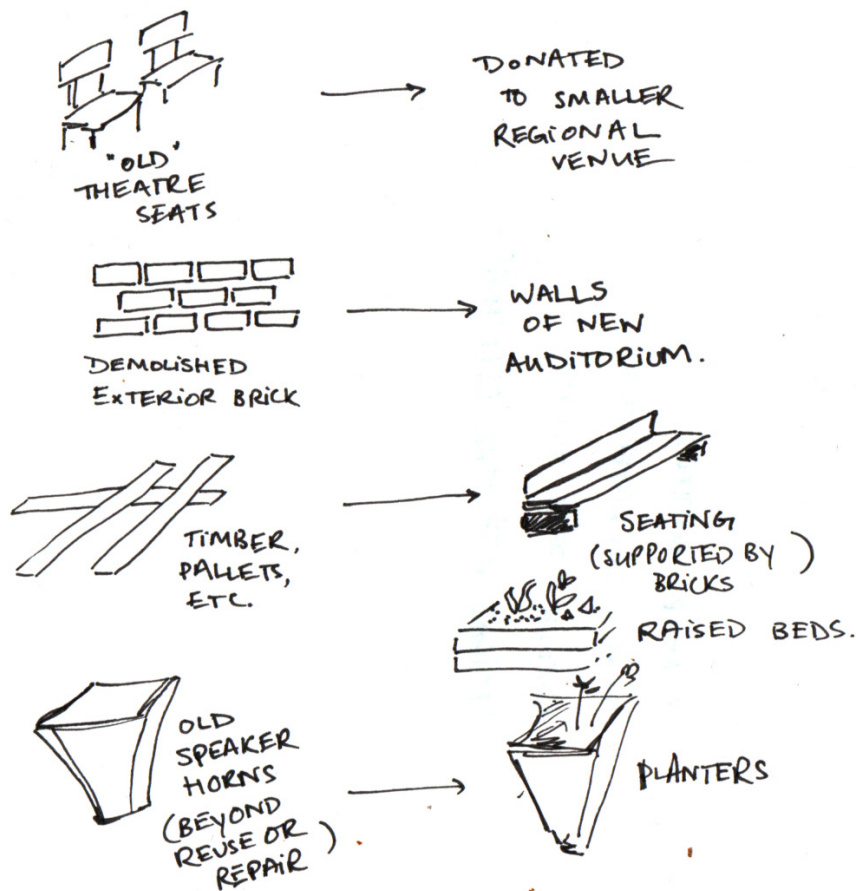 "OLD"
THEATRE
SEATS
DONATED
TO SMALLER
REGIONAL
VENUE
DEMOLISHED
EXTERIOR BRICK
WALLS
OF NEW
AUDITORIUM.
TIMBER,
PALLETS,
ETC.
SEATING
(SUPPORTED BY)
BRICKS
RAISED BEDS.
OLD
SPEAKER
HORNS
(BEYOND
REUSE OR)
REPAIR
PLANTERS